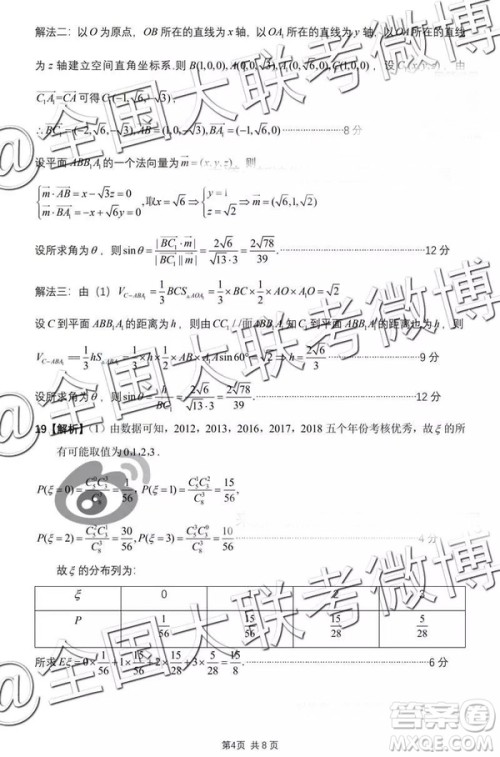 解法二：以O为原点，OB所在的直线为x轴，以OA₁所在的直线为y轴，以OA所在的直线
为z轴建立空间直角坐标系.则B(1,0,0),A(0,0,√3),A₁(0,√6,0),C(-1,0,0)，设C₁(x,y,z)，由
C₁A₁=CA可得C₁(-1,√6,-√3),
∴BC₁=(-2,√6,-√3),AB=(1,0,-√3),BA₁=(-1,√6,0) 8分
设平面ABB₁A₁的一个法向量为m=(x,y,z)，则
{m·AB=x-√3z=0 m·BA₁=-x+√6y=0，取x=√6⇒{y=1 z=√2⇒m=(√6,1,√2)
设所求角为θ，则sinθ=|BC₁·m|/(|BC₁||m|)=2√6/(√13·3)=2√78/39. 12分
解法三：由（1）
设C到平面ABB₁A₁的距离为h，则由CC₁//面ABB₁A₁知C₁到平面ABB₁A₁的距离也为h，则
9分
设所求角为θ，则sinθ=h/BC₁=2√6/(√13·3)=2√78/39. 12分
19【解析】（1）由数据可知，2012，2013，2016，2017，2018五个年份考核优秀，故ξ的所
有可能取值为0,1,2,3.
P(ξ=0)=C₅⁰C₃³/C₈³=1/56, P(ξ=1)=C₅¹C₃²/C₈³=15/56,
P(ξ=2)=C₅²C₃¹/C₈³=30/56, P(ξ=3)=C₅³C₃⁰/C₈³=10/56 4分
故ξ的分布列为：
ξ 0 1 2 3
P 1/56 15/56 15/28 5/28
所求Eξ=0×1/56+1×15/56+2×15/28+3×5/28=15/8. 6分
第4页 共8页
@全国大联考微博
@全国大联考微博
答案圈